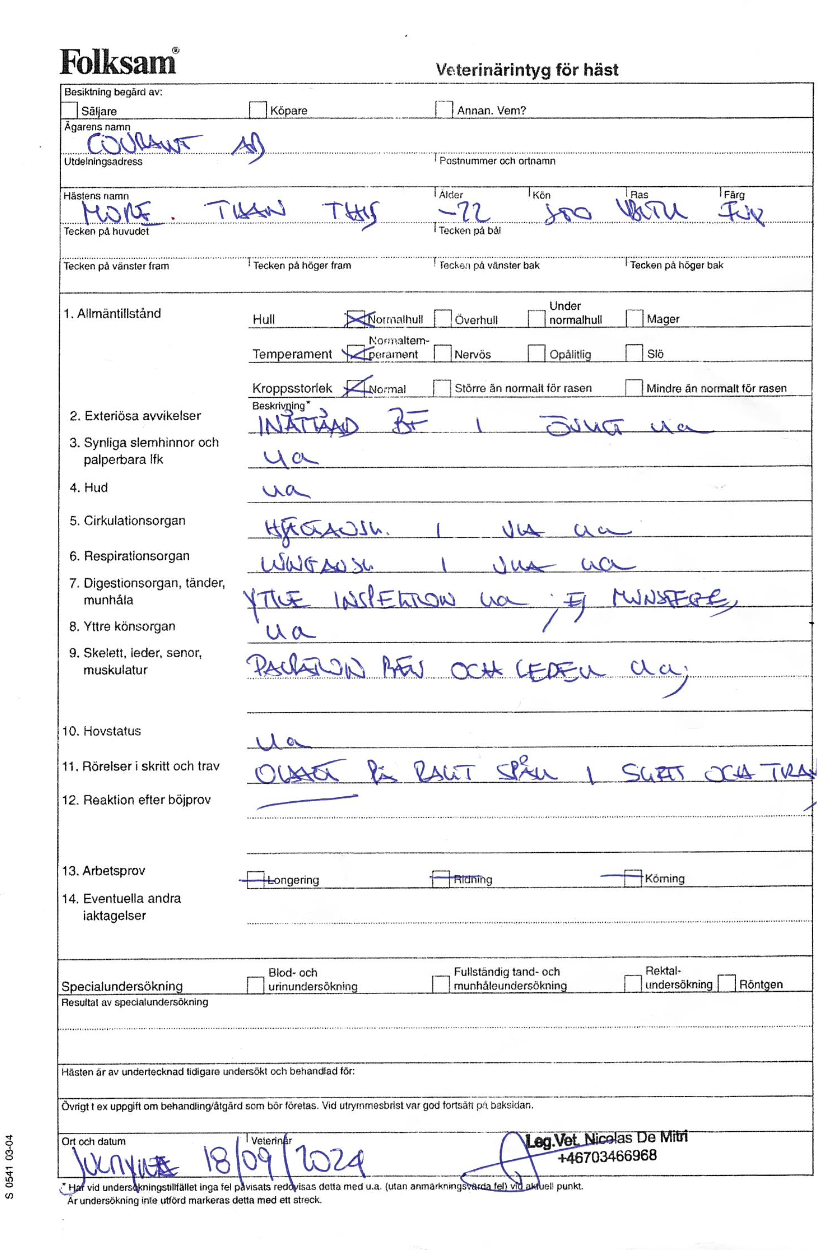 Folksam®
Veterinärintyg för häst
Besiktning begärd av:
Säljare Köpare Annan. Vem?
Ägarens namn
COURANT AB
Utdelningsadress Postnummer och ortnamn
Hästens namn Ålder Kön Ras Färg
MORE THAN THIS -22 STO
Tecken på huvudet Tecken på bål
Tecken på vänster fram Tecken på höger fram Tecken på vänster bak Tecken på höger bak
1. Allmäntillstånd
Hull Normalhull Överhull Under normalhull Mager
Temperament Normaltemperament Nervös Opålitlig Slö
Kroppsstorlek Normal Större än normalt för rasen Mindre än normalt för rasen
Beskrivning*
2. Exteriösa avvikelser INÅTTÅAD BF I ÖVRIGT ua
3. Synliga slemhinnor och
palperbara lfk ua
4. Hud ua
5. Cirkulationsorgan I VILA ua
6. Respirationsorgan I VILA ua
7. Digestionsorgan, tänder,
munhåla YTTRE INSPEKTION ua; EJ MUNSTEGE
8. Yttre könsorgan ua
9. Skelett, leder, senor,
muskulatur PALPATION BEN OCH LEDER ua;
10. Hovstatus ua
11. Rörelser i skritt och trav PÅ RAKT SPÅR I SKRITT OCH TRAV
12. Reaktion efter böjprov
13. Arbetsprov Longering Ridning Körning
14. Eventuella andra
iaktagelser
Specialundersökning Blod- och urinundersökning Fullständig tand- och munhåleundersökning Rektal-undersökning Röntgen
Resultat av specialundersökning
Hästen är av undertecknad tidigare undersökt och behandlad för:
Övrigt t ex uppgift om behandling/åtgärd som bör företas. Vid utrymmesbrist var god fortsätt på baksidan.
Ort och datum Veterinär
18/09/2024
Leg.Vet. Nicolas De Mitri
+46703466968
* Har vid undersökningstillfället inga fel påvisats redovisas detta med u.a. (utan anmärkningsvärda fel) vid aktuell punkt.
Är undersökning inte utförd markeras detta med ett streck.
S 0541 03-04